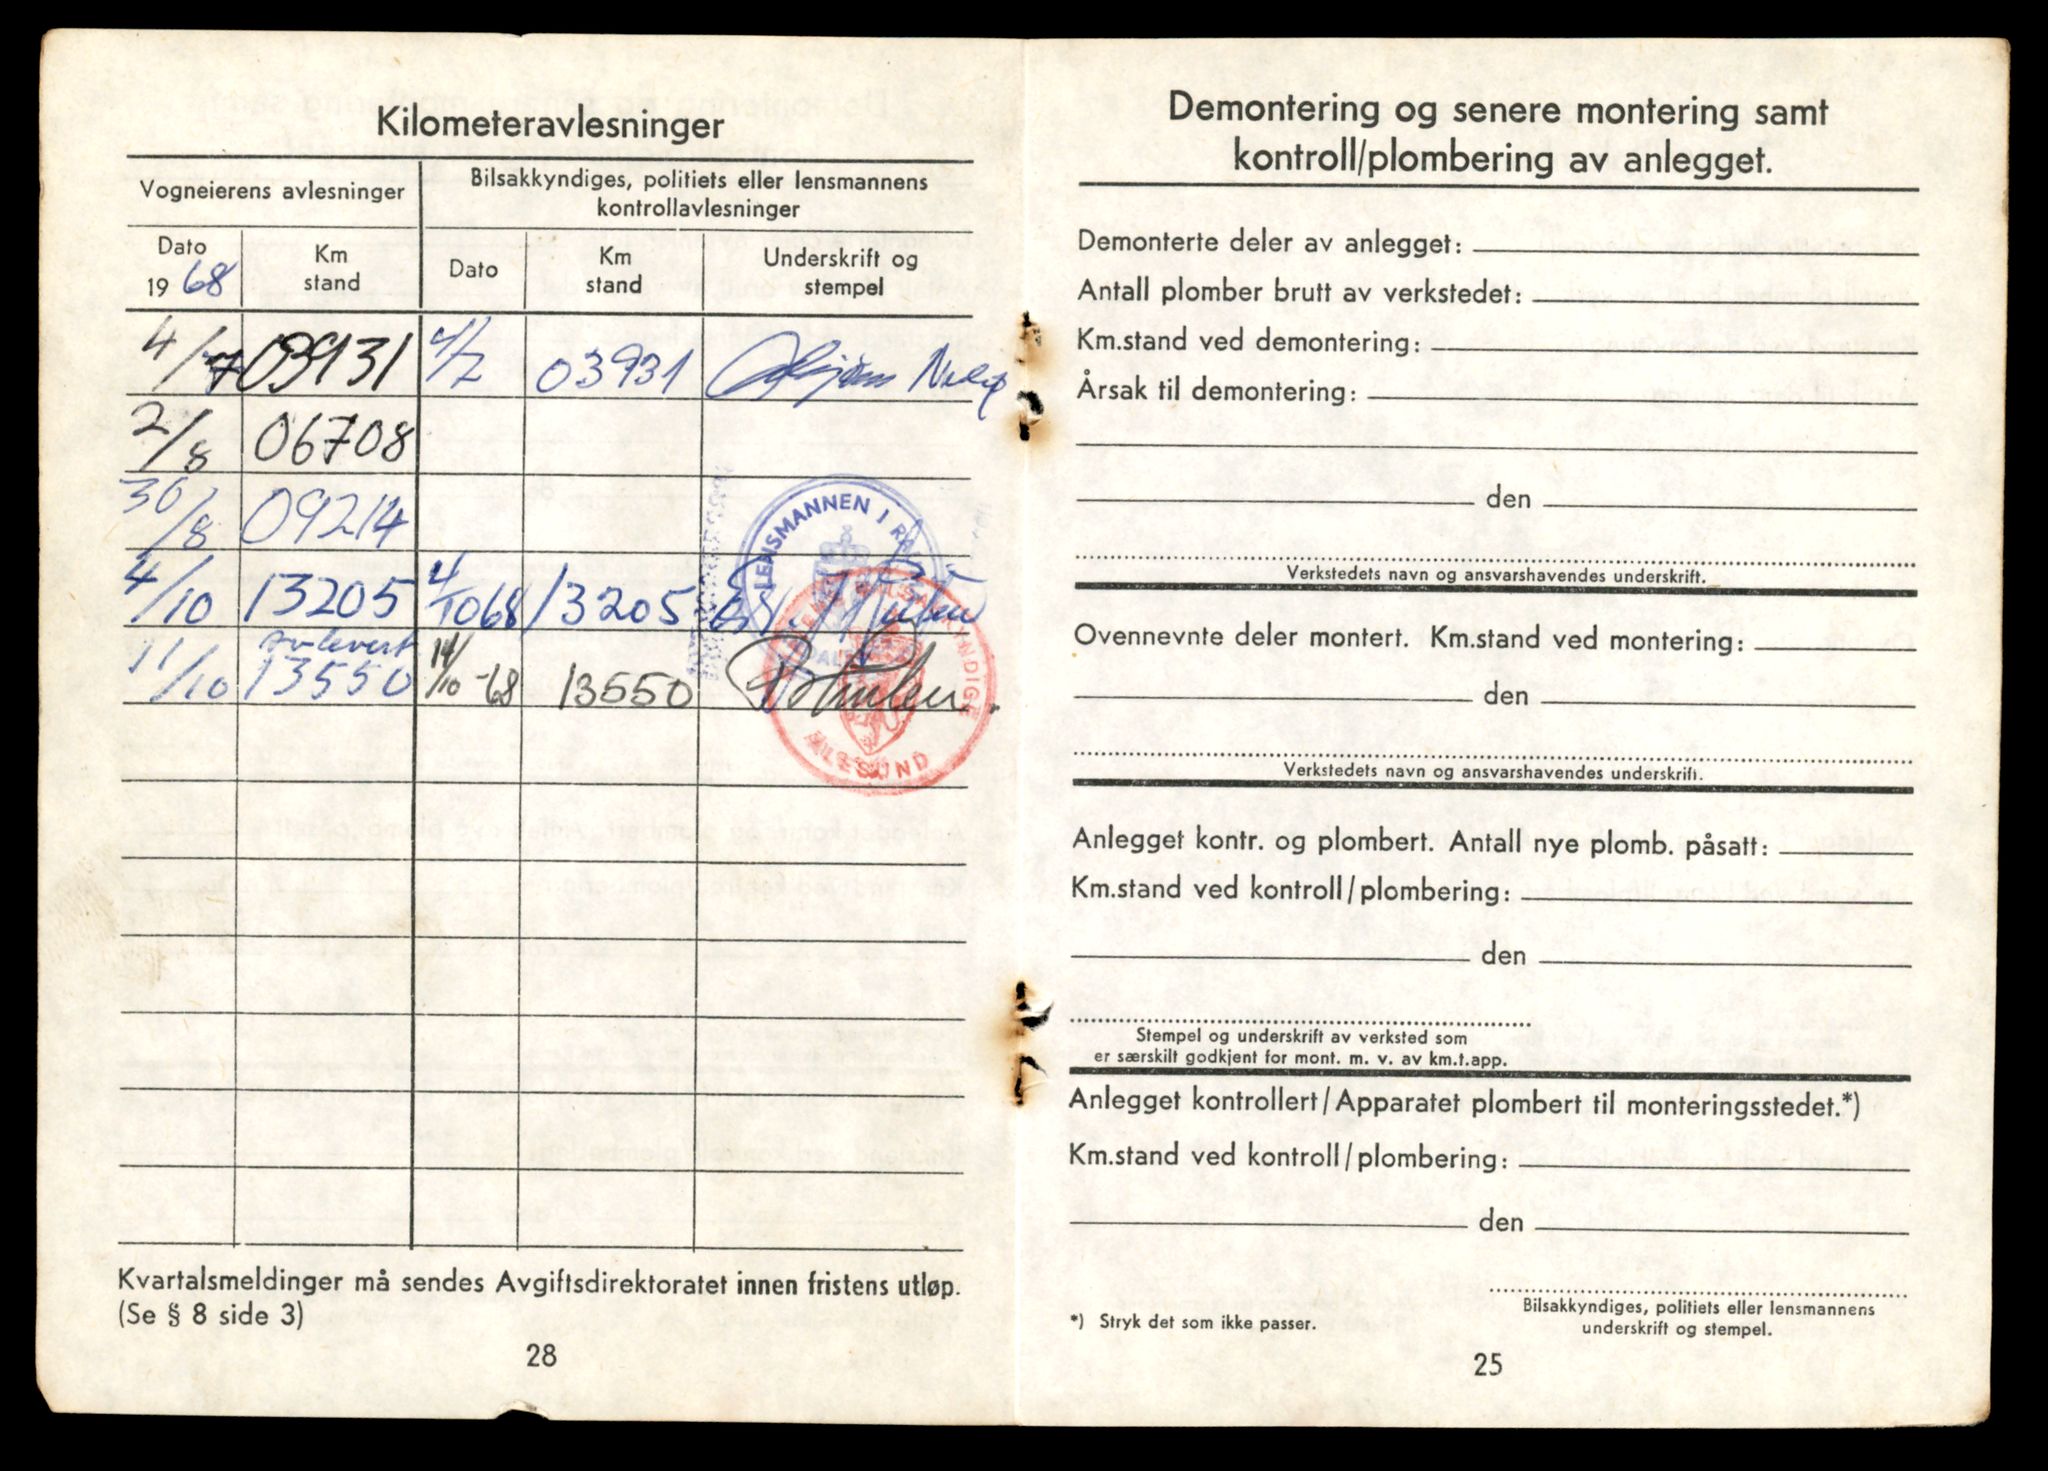 Kilometeravlesninger
Vogneierens avlesninger
Bilsakkyndiges, politiets eller lensmannens
kontrollavlesninger
Dato
1968
Km
stand
Dato
Km
stand
Underskrift og
stempel
4/7 03931 4/7 03931
2/8 06708
30/8 09214
LENSMANNEN I
4/10 13205 4/10 68 13205
avlevert
11/10 13550 14/10-68 13550
ÅLESUND
Kvartalsmeldinger må sendes Avgiftsdirektoratet innen fristens utløp.
(Se § 8 side 3)
28
Demontering og senere montering samt
kontroll/plombering av anlegget.
Demonterte deler av anlegget:
Antall plomber brutt av verkstedet:
Km.stand ved demontering:
Årsak til demontering:
den
Verkstedets navn og ansvarshavendes underskrift.
Ovennevnte deler montert. Km.stand ved montering:
den
Verkstedets navn og ansvarshavendes underskrift.
Anlegget kontr. og plombert. Antall nye plomb. påsatt:
Km.stand ved kontroll/plombering:
den
Stempel og underskrift av verksted som
er særskilt godkjent for mont. m. v. av km.t.app.
Anlegget kontrollert/Apparatet plombert til monteringsstedet.*)
Km.stand ved kontroll/plombering:
den
Bilsakkyndiges, politiets eller lensmannens
underskrift og stempel.
*) Stryk det som ikke passer.
25